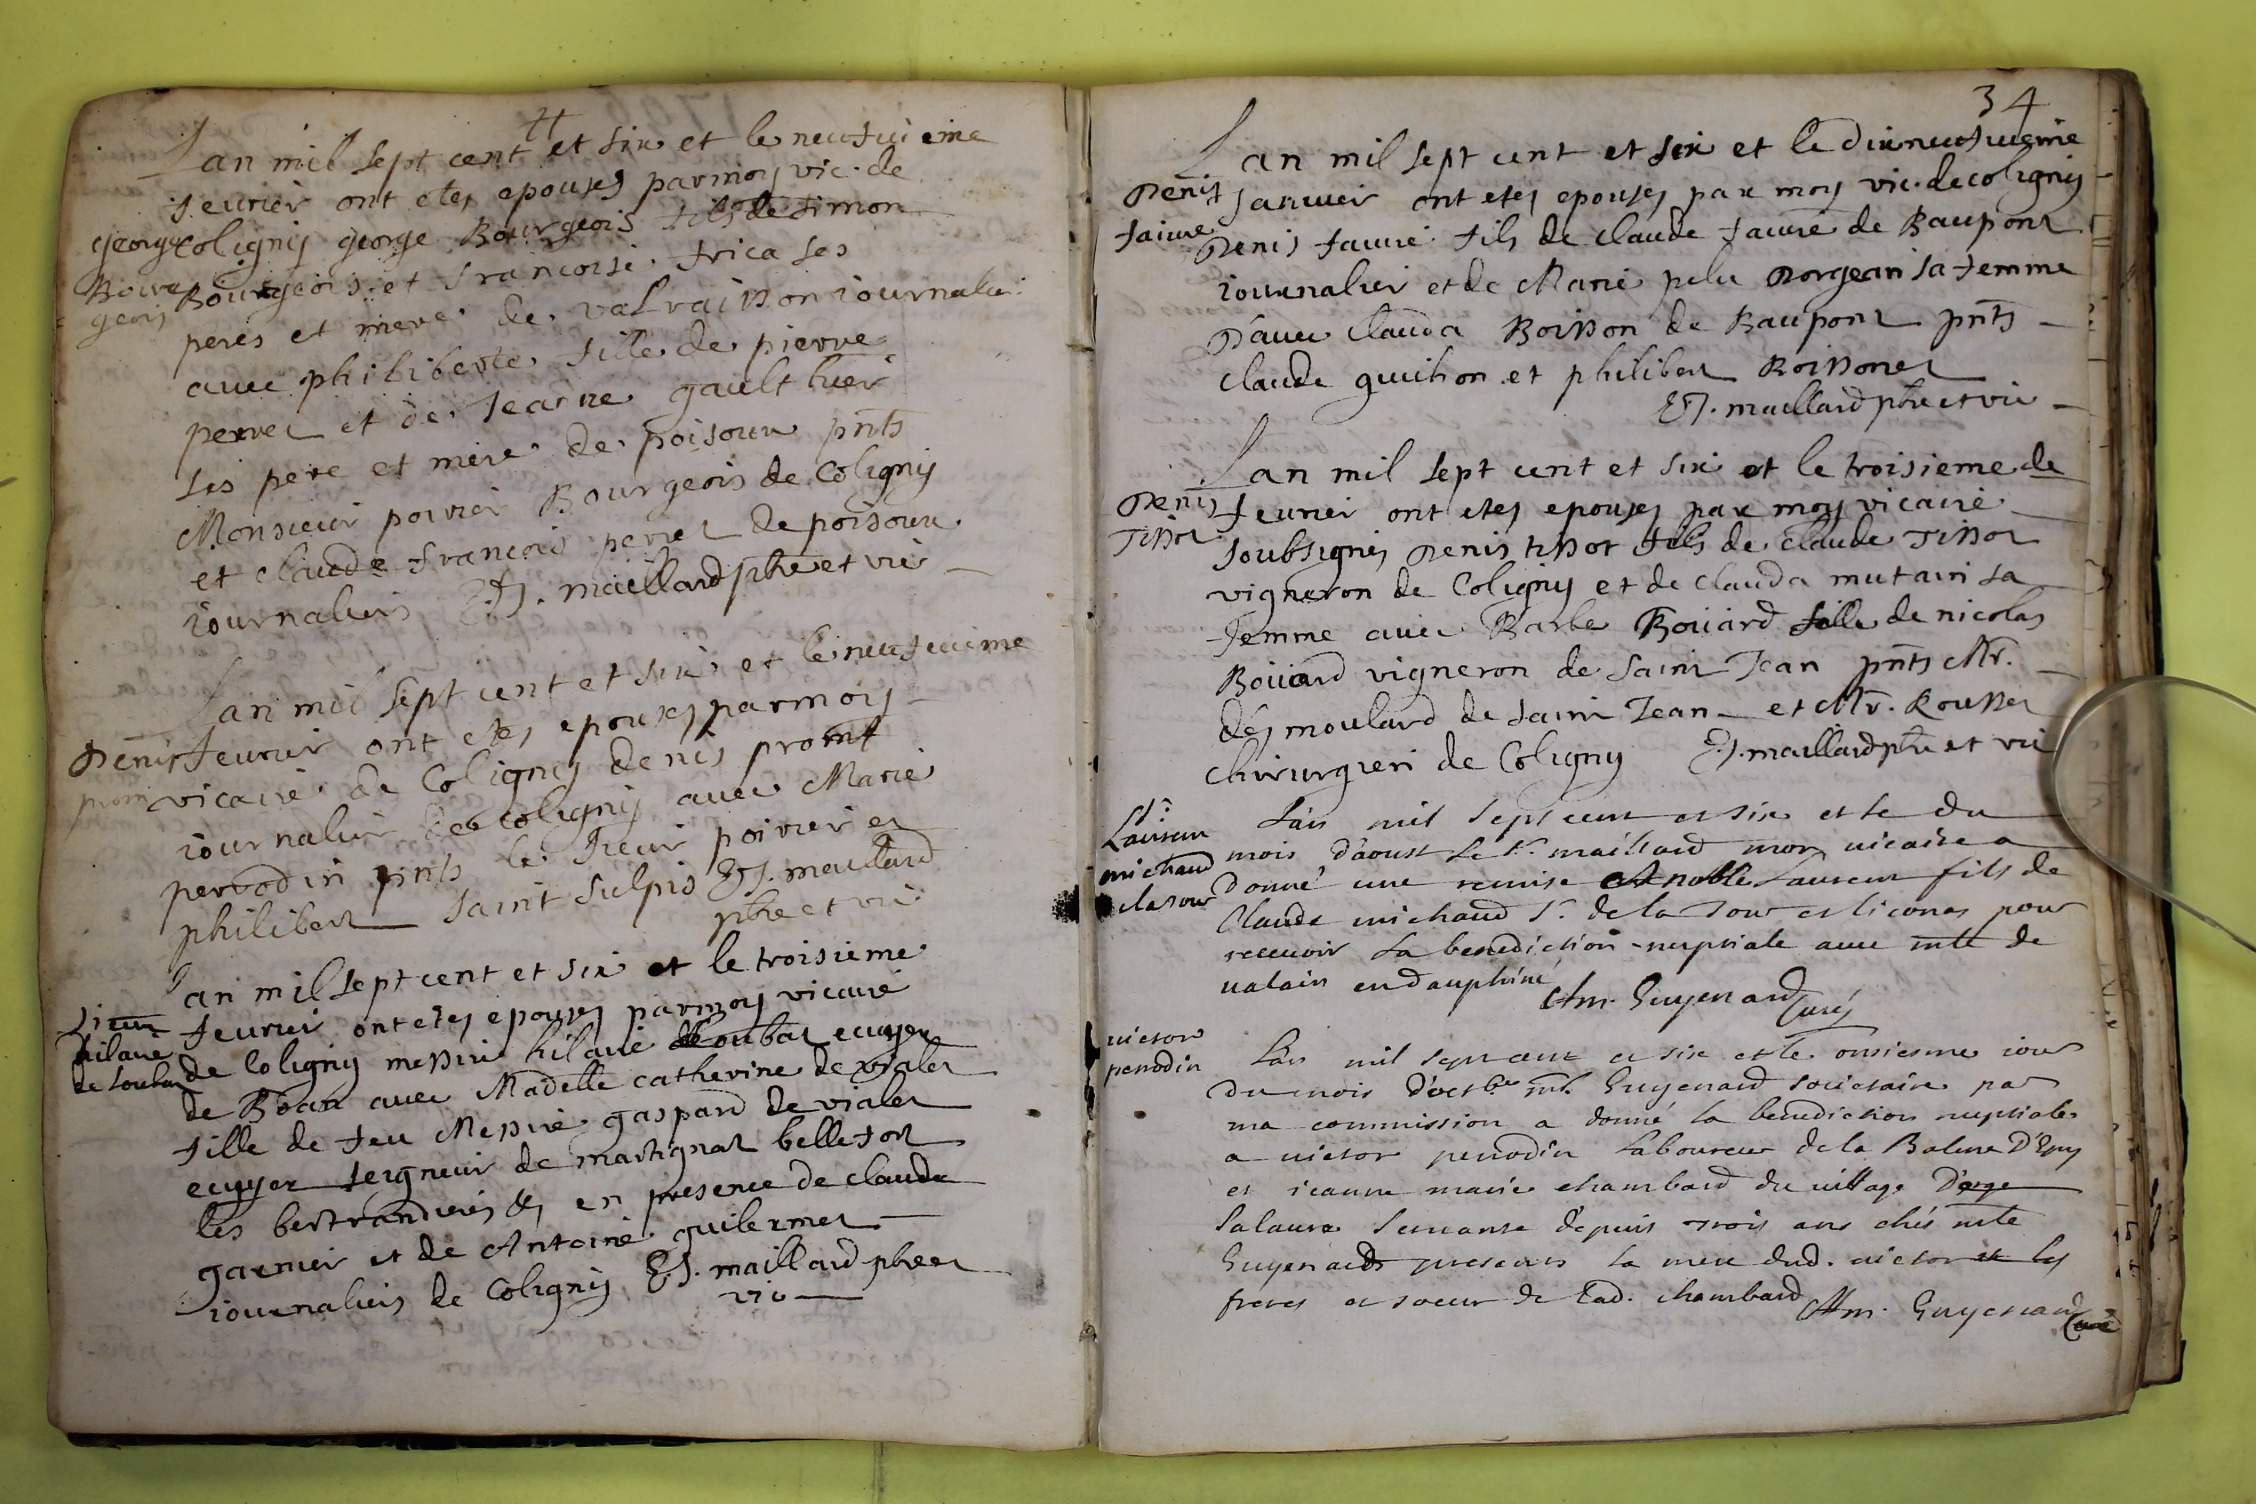 Lan mil sept cent et six et le neufuieme
feurier ont etes epouses par moy vic. de
George
Bour
geois
coligny george Bourgeois fils de simon
Bourgeois et francoise frica ses
peres et mere de valraisson iournalier
auec philiberte fille de pierre
perret et de Jeanne gaulthier
ses pere et mere de poisoux pnts
Monsieur poirier Bourgeois de Coligny
et claude francois perret de poisoux
iournaliers E.J. maillard pbre et vic
Lan mil sept cent et six et le neufuieme
Denis
prom
feurier ont etes epouses par moy
vicaire de Coligny denis promt
iournalier de Coligny auec Marie
perrodin pnts le sieur poirier et
philibert saint sulpis E.J. maillard
pbre et vic
Lan mil sept cent et six et le troisieme
Sieur
hilaire
de loubat
feurier ont etes epouses par moy vicaire
de Coligny messire hilaire de loubat ecuyer
de Boan auec Madelle catherine de vialet
fille de feu Messire gaspard de vialet
ecuyer seigneur de martignat bellefort
les bertrandieres &c en presence de claude
garnier et de Antoine guilermet
iournaliers de Coligny E.J. maillard pbre et
vic
34
Lan mil sept cent et six et le dixneufuieme
Denis
faiure
Januier ont etes epouses par moy vic. de coligny
Denis faiure fils de claude faiure de Baupont
iournalier et de Marie pelu Dorgean sa femme
D'auec Clauda Boisson de Baupont pnts
claude guichon et philibert Boissonet
E.J. maillard pbre et vic
Lan mil sept cent et six et le troisieme de
Denis
Tissot
feurier ont etes epouses par moy vicaire
soubsignes Denis tissot fils de claude Tissot
vigneron de Coligny et de Clauda mutain sa
femme auec Barbe Boüard fille de nicolas
Boüard vigneron de saint Jean pnts Mr.
desmoulard de saint Jean et Mr. Rousset
chirurgien de Coligny E.J. maillard pbre et vic
Sr.
Laurent
michaud
de la tour
L'an mil sept cent et six et le du
mois d'aoust le Sr. maillard mon vicaire a
donné une remise A noble Laurent fils de
Claude michaud Sr. de la Tour et liconas pour
receuoir la benediction nuptiale auec mlle de
ualain en dauphiné
Am. Guyenard Curé
victor
perrodin
L'an mil sept cent et six et le onsiesme iour
du mois d'octbre mr. Guyenard societaire par
ma commission a donné la benediction nuptiale
a victor perrodin laboureur de la Balme D'Epy
et ieanne marie chambard du village D'
salaura seruante depuis trois ans chés mlle
Guyenard presents la mere dud. victor et les
freres et soeur de lad. chambard Am. Guyenard
Curé